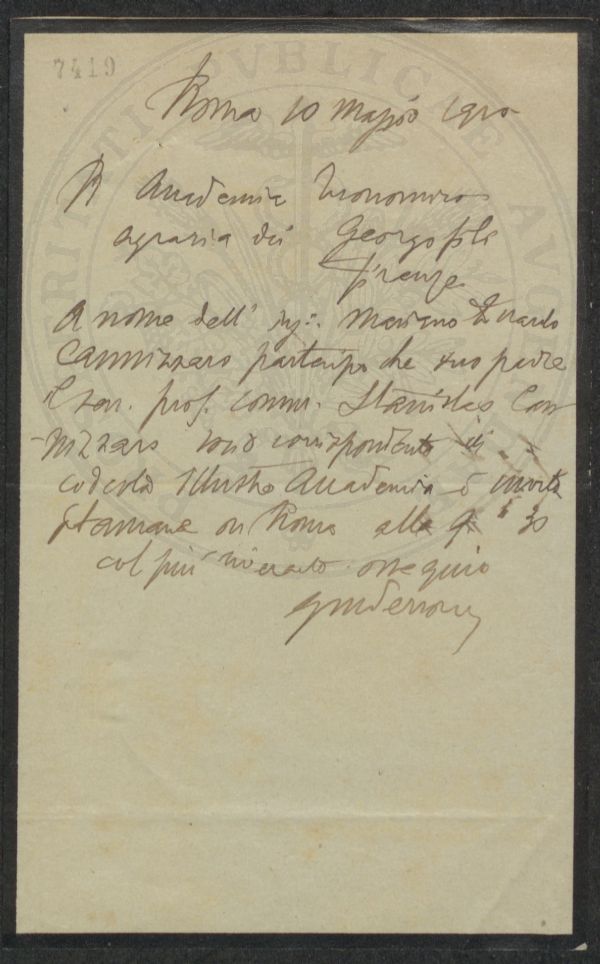 7419
Roma 10 Maggio 1910
R Accademia Economico
agraria dei Georgofili
Firenze
A nome dell' Ing. Mariano Edoardo
Cannizzaro partecipo che suo padre
il sen. prof. comm. Stanislao Can
-nizzaro socio corrispondente di
codesta Illustre Accademia è morto
stamane in Roma alle 9 e 30
col più ossequio